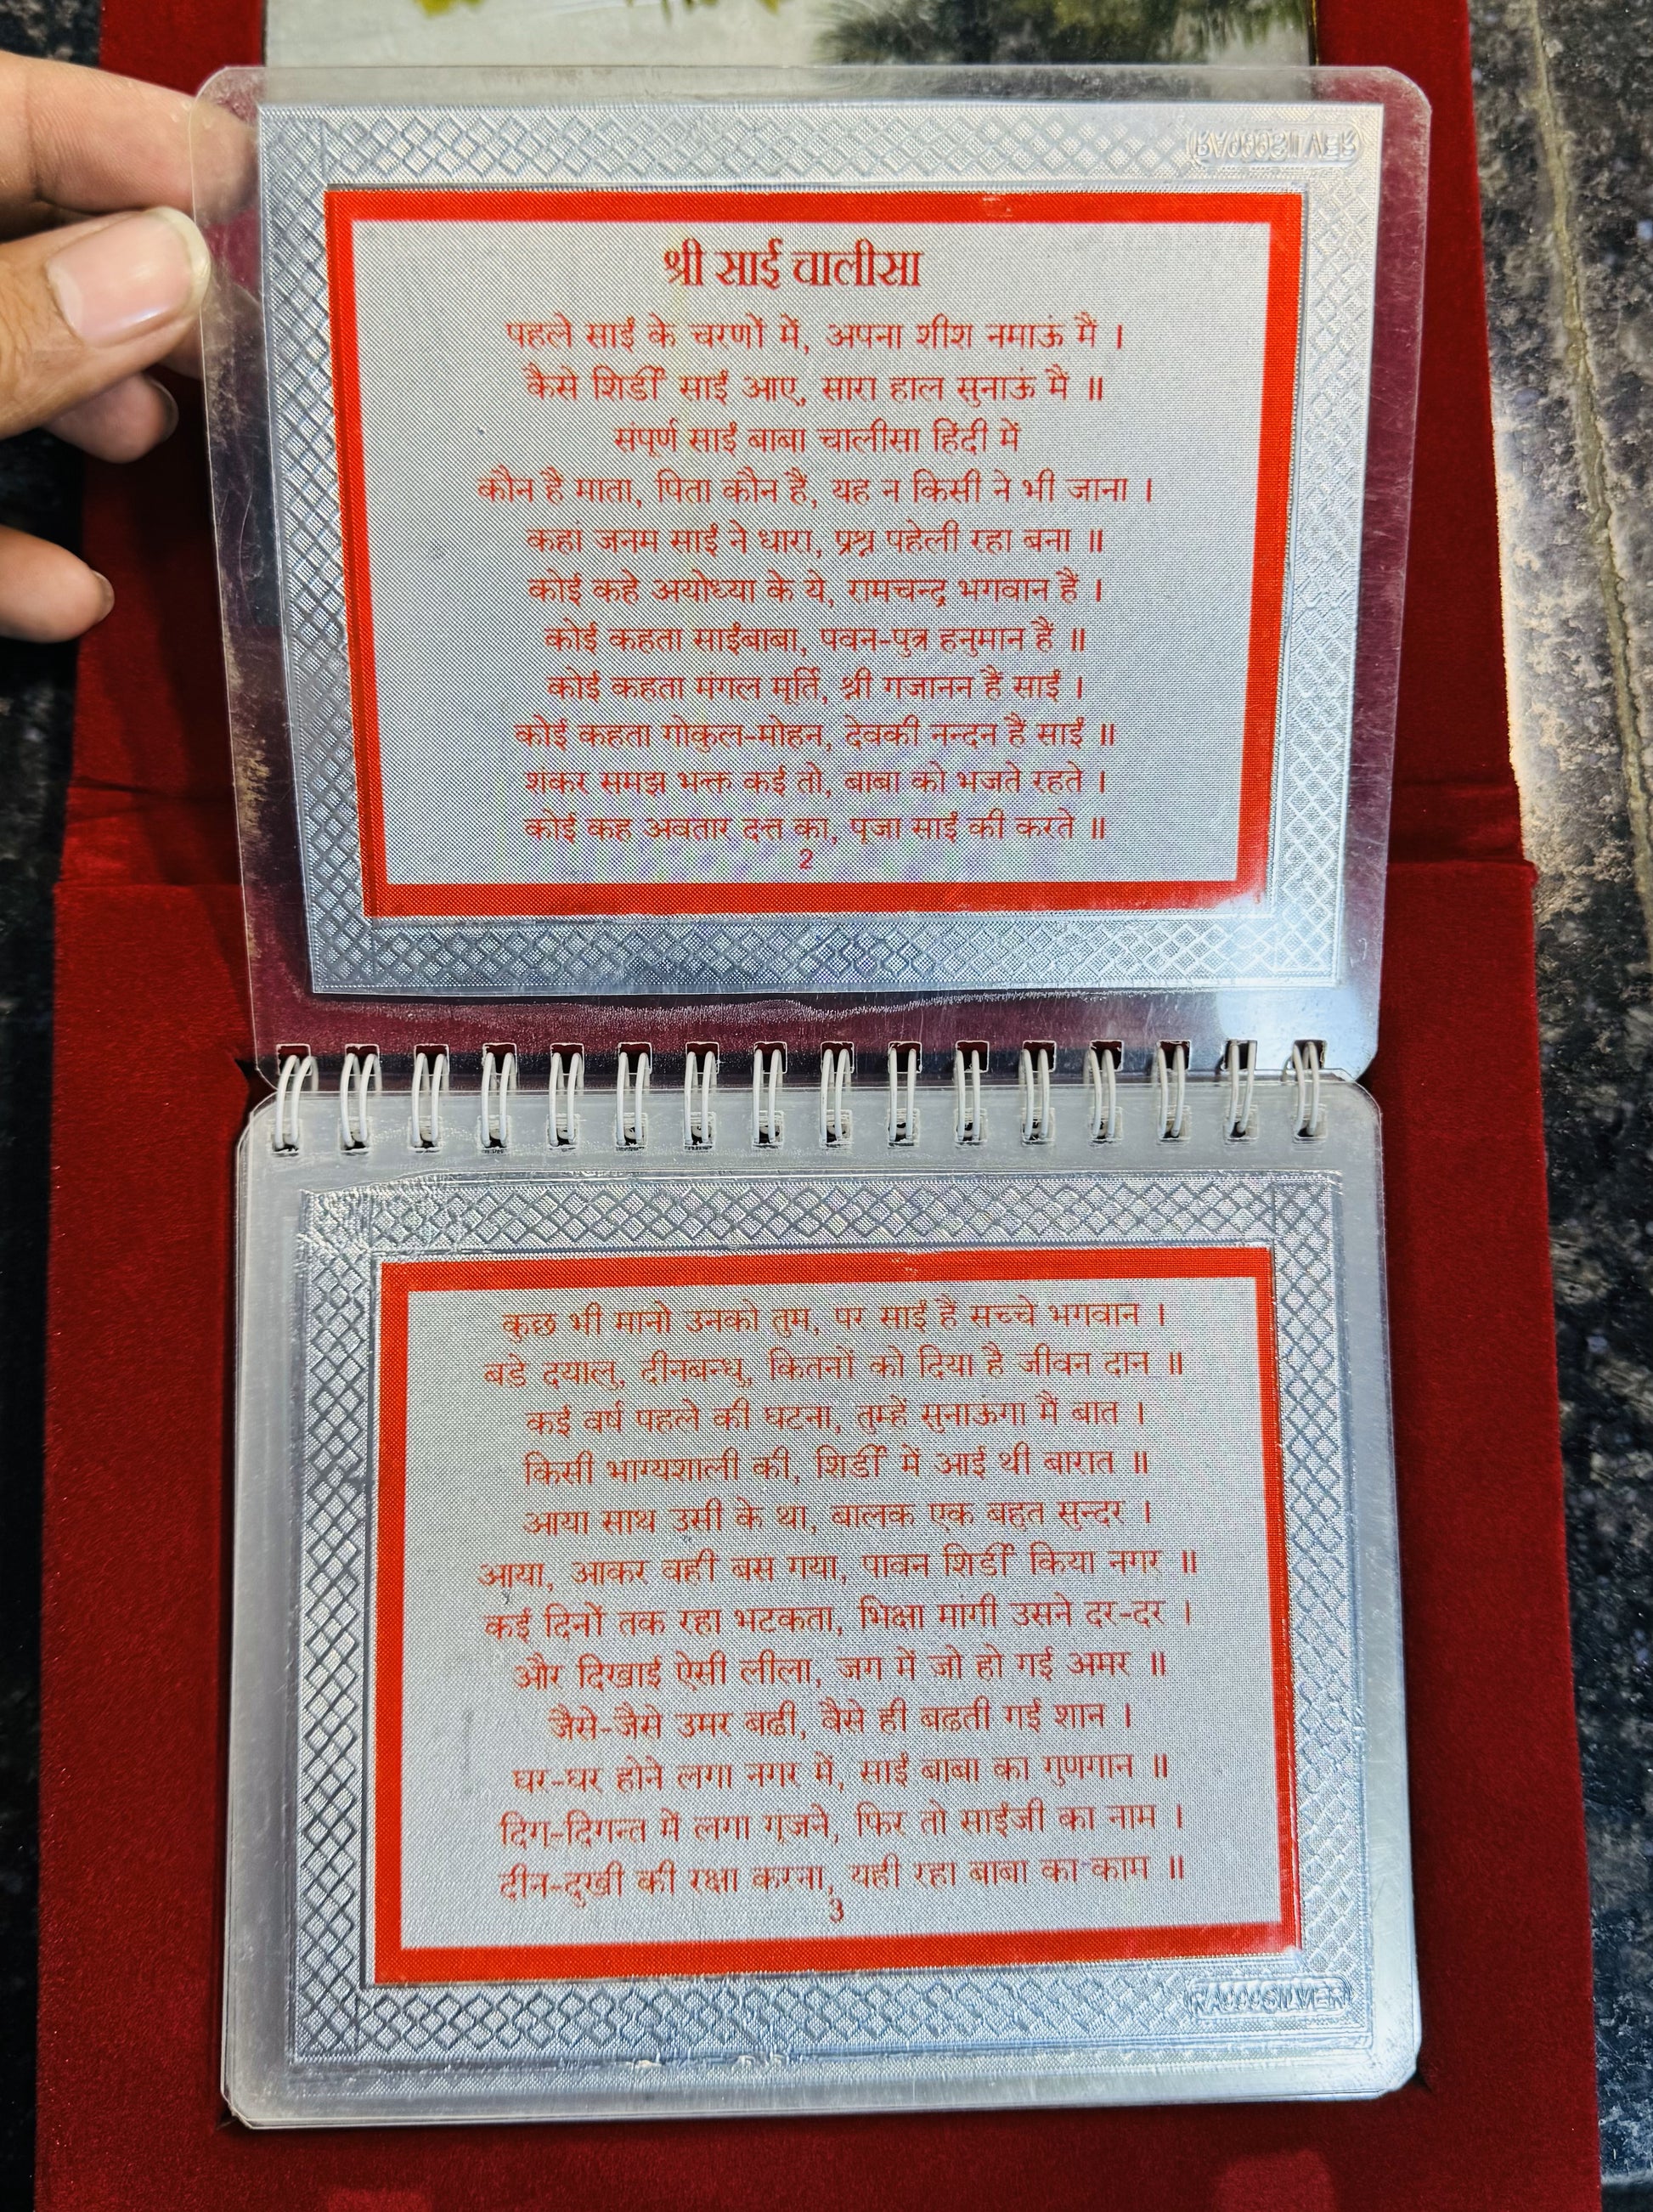 RA999SILVER
श्री साई चालीसा
पहले साईं के चरणों में, अपना शीश नमाऊं मैं ।
कैसे शिर्डी साईं आए, सारा हाल सुनाऊं मैं ॥
संपूर्ण साईं बाबा चालीसा हिंदी में
कौन है माता, पिता कौन है, यह न किसी ने भी जाना ।
कहां जनम साईं ने धारा, प्रश्न पहेली रहा बना ॥
कोई कहे अयोध्या के ये, रामचन्द्र भगवान हैं ।
कोई कहता साईंबाबा, पवन-पुत्र हनुमान हैं ॥
कोई कहता मंगल मूर्ति, श्री गजानन हैं साईं ।
कोई कहता गोकुल-मोहन, देवकी नन्दन हैं साईं ॥
शंकर समझ भक्त कई तो, बाबा को भजते रहते ।
कोई कह अवतार दत्त का, पूजा साईं की करते ॥
2
कुछ भी मानो उनको तुम, पर साईं हैं सच्चे भगवान ।
बडे दयालु, दीनबन्धु, कितनों को दिया है जीवन दान ॥
कई वर्ष पहले की घटना, तुम्हें सुनाऊंगा मैं बात ।
किसी भाग्यशाली की, शिर्डी में आई थी बारात ॥
आया साथ उसी के था, बालक एक बहुत सुन्दर ।
आया, आकर वही बस गया, पावन शिर्डी किया नगर ॥
कई दिनों तक रहा भटकता, भिक्षा मांगी उसने दर-दर ।
और दिखाई ऐसी लीला, जग में जो हो गई अमर ॥
जैसे-जैसे उमर बढी, वैसे ही बढती गई शान ।
घर-घर होने लगा नगर में, साईं बाबा का गुणगान ॥
दिग्-दिगन्त में लगा गूंजने, फिर तो साईंजी का नाम ।
दीन-दुखी की रक्षा करना, यही रहा बाबा का काम ॥
3
RA999SILVER